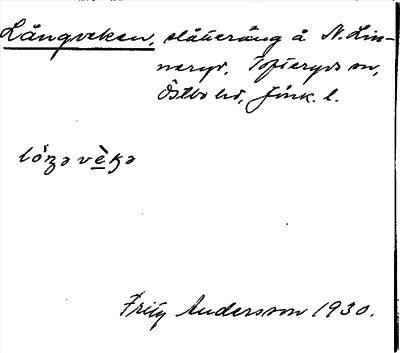 Långveken, slåtteräng å N. Lin-
neryd, Tofteryds sn,
Östbo hd, Jönk. l.
lóŋəvèkə
Fritz Andersson 1930.